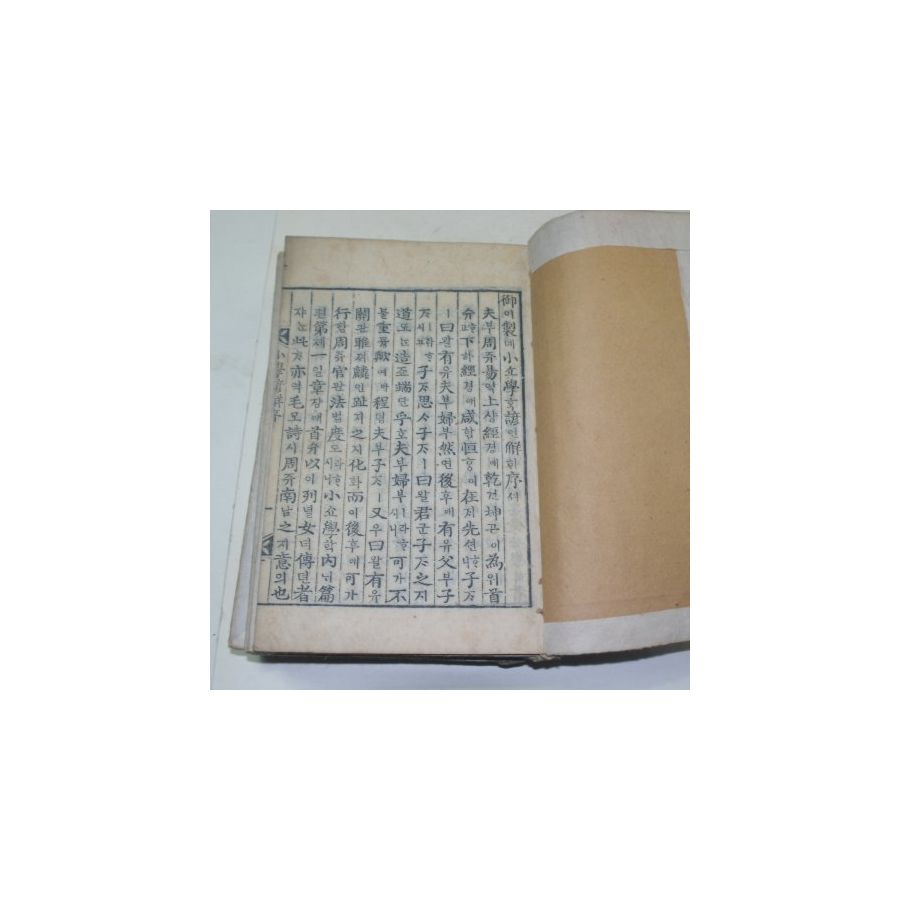 御어製졔小쇼學학諺언解ᄒᆡ序셔
夫부周쥬易역上샹經경에乾건坤곤이爲위首
슈下하經경에咸함恒ᄒᆡᆼ이在ᄌᆡ先션子ᄌᆞ
ㅣ曰왈有유夫부婦부然연後후에有유父부子
ᄌᆞㅣ라ᄒᆞ시고子ᄌᆞ思ᄉᆞ子ᄌᆞㅣ曰왈君군子ᄌᆞ之지
道도ᄂᆞᆫ造조端단乎호夫부婦부ㅣ라ᄒᆞ시니可가不
불重듕歟여아程뎡夫부子ᄌᆞㅣ又우曰왈有유
關관雎져麟인趾지之지化화而이後후에可가
行ᄒᆡᆼ周쥬官관法법度도ㅣ라ᄒᆞ시니小쇼學학內ᄂᆡ篇
편第뎨一일章쟝에首슈以이列녈女녀傳뎐者
쟈ᄂᆞᆫ此ᄎᆞ亦역毛모詩시周쥬南남之지意의也
小學諺解序
一